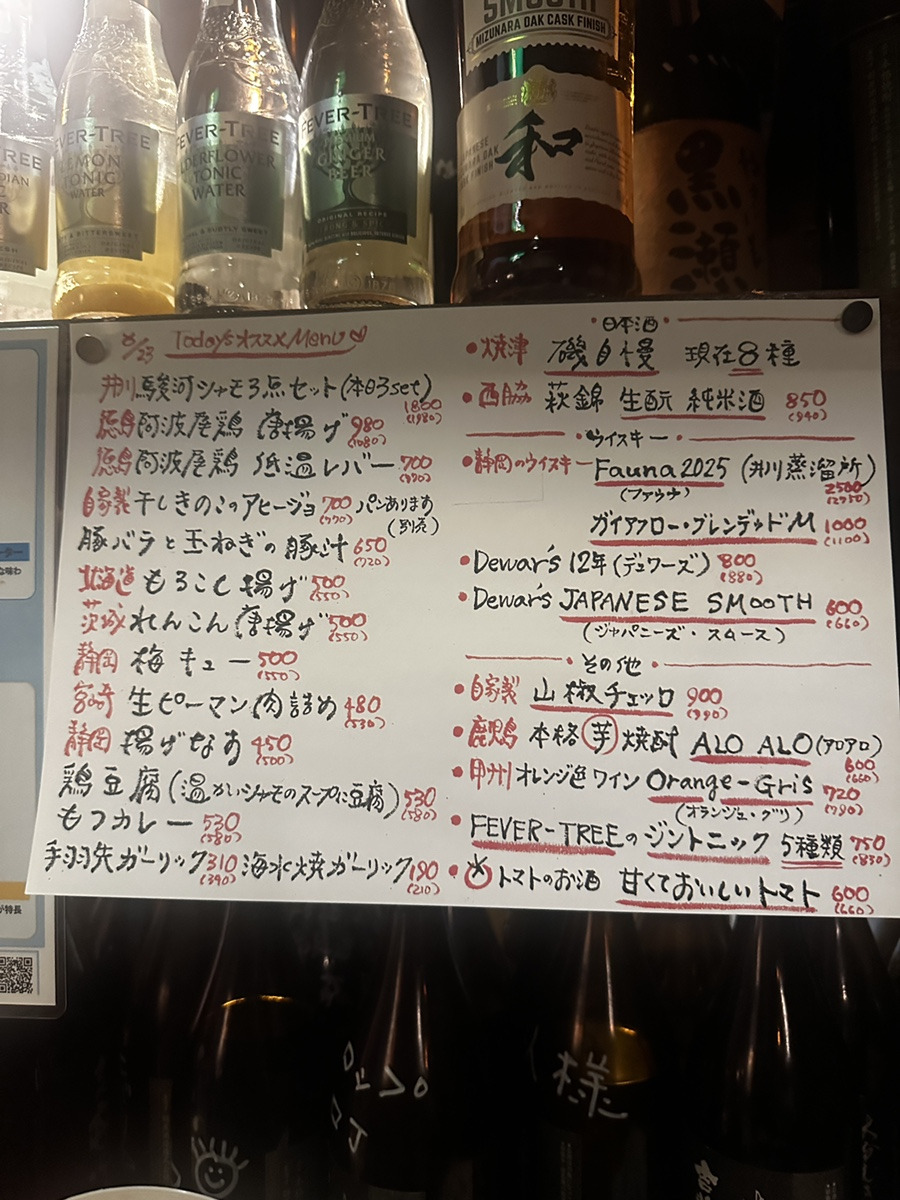 SMOOTH
MIZUNARA OAK CASK FINISH
FEVER-TREE
LEMON
TONIC
WATER
FEVER-TREE
ELDERFLOWER
TONIC
WATER
FEVER-TREE
GINGER
BEER
ORIGINAL RECIPE
和
黒瀬
8/23 Today's オススメ Menu
井川 駿河シャモ3点セット(本日3set) 1800 (1980)
徳島 阿波尾鶏 唐揚げ 980 (1080)
徳島 阿波尾鶏 低温レバー 700 (770)
自家製 干しきのこのアヒージョ 700 (770) パンあります (別売)
豚バラと玉ねぎの豚汁 650 (720)
北海道 もろこし揚げ 500 (550)
茨城 れんこん唐揚げ 500 (550)
静岡 梅キュー 500 (550)
宮崎 生ピーマン肉詰め 480 (530)
静岡 揚げなす 450 (500)
鶏豆腐(温かいシャモのスープに豆腐) 530 (580)
もつカレー 530 (580)
手羽先ガーリック 310 (340) 海水焼ガーリック 190 (210)
・日本酒・
・焼津 磯自慢 現在8種
・西脇 萩錦 生酛 純米酒 850 (940)
・ウイスキー・
・静岡のウイスキー Fauna 2025 (井川蒸溜所) 2500 (2750)
(ファウナ)
ガイアフロー・ブレンデッドM 1000 (1100)
・Dewar's 12年(デュワーズ) 800 (880)
・Dewar's JAPANESE SMOOTH 600 (660)
(ジャパニーズ・スムース)
・その他・
・自家製 山椒チェッロ 900 (990)
・鹿児島 本格芋焼酎 ALO ALO(アロアロ) 600 (660)
・甲州 オレンジ色ワイン Orange-Gris 720 (790)
(オランジュ・グリ)
・FEVER-TREEのジントニック 5種類 750 (830)
・トマトのお酒 甘くておいしいトマト 600 (660)
が特長
様